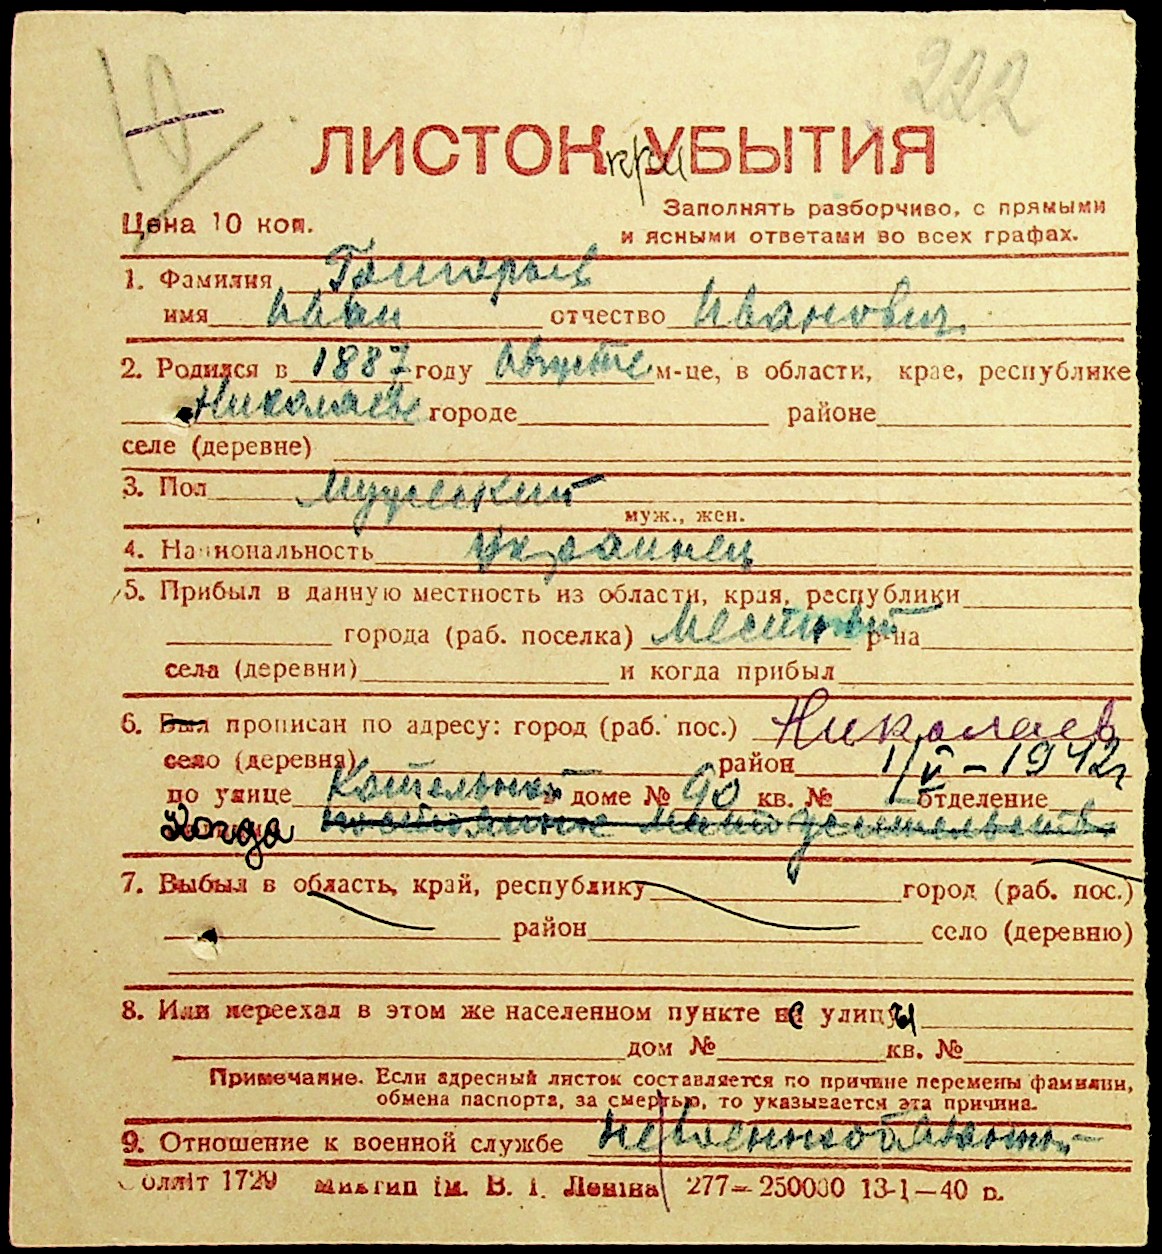 222
Ю
ЛИСТОК при УБЫТИЯ
Цена 10 коп.
Заполнять разборчиво, с прямыми
и ясными ответами во всех графах.
1. Фамилия
имя Иван отчество Иванович
2. Родился в 1887 году Августе м-це, в области, крае, республике
Николаеве городе районе
селе (деревне)
3. Пол мужской
муж., жен.
4. Национальность украинец
5. Прибыл в данную местность из области, края, республики
города (раб. поселка) местный р-на
села (деревни) и когда прибыл
6. Был прописан по адресу: город (раб. пос.) Николаев
село (деревня) район 1/V – 1942 г
по улице Котельной доме № 90 кв. № отделение
Когда постоянное место жительства
7. Выбыл в область, край, республику город (раб. пос.)
район село (деревню)
8. Или переехал в этом же населенном пункте с улицы
дом № кв. №
Примечание. Если адресный листок составляется по причине перемены фамилии,
обмена паспорта, за смертью, то указывается эта причина.
9. Отношение к военной службе Невоеннообязанный
Облліт 1729 Миктип ім. В. І. Леніна 277—250000 13-1—40 р.